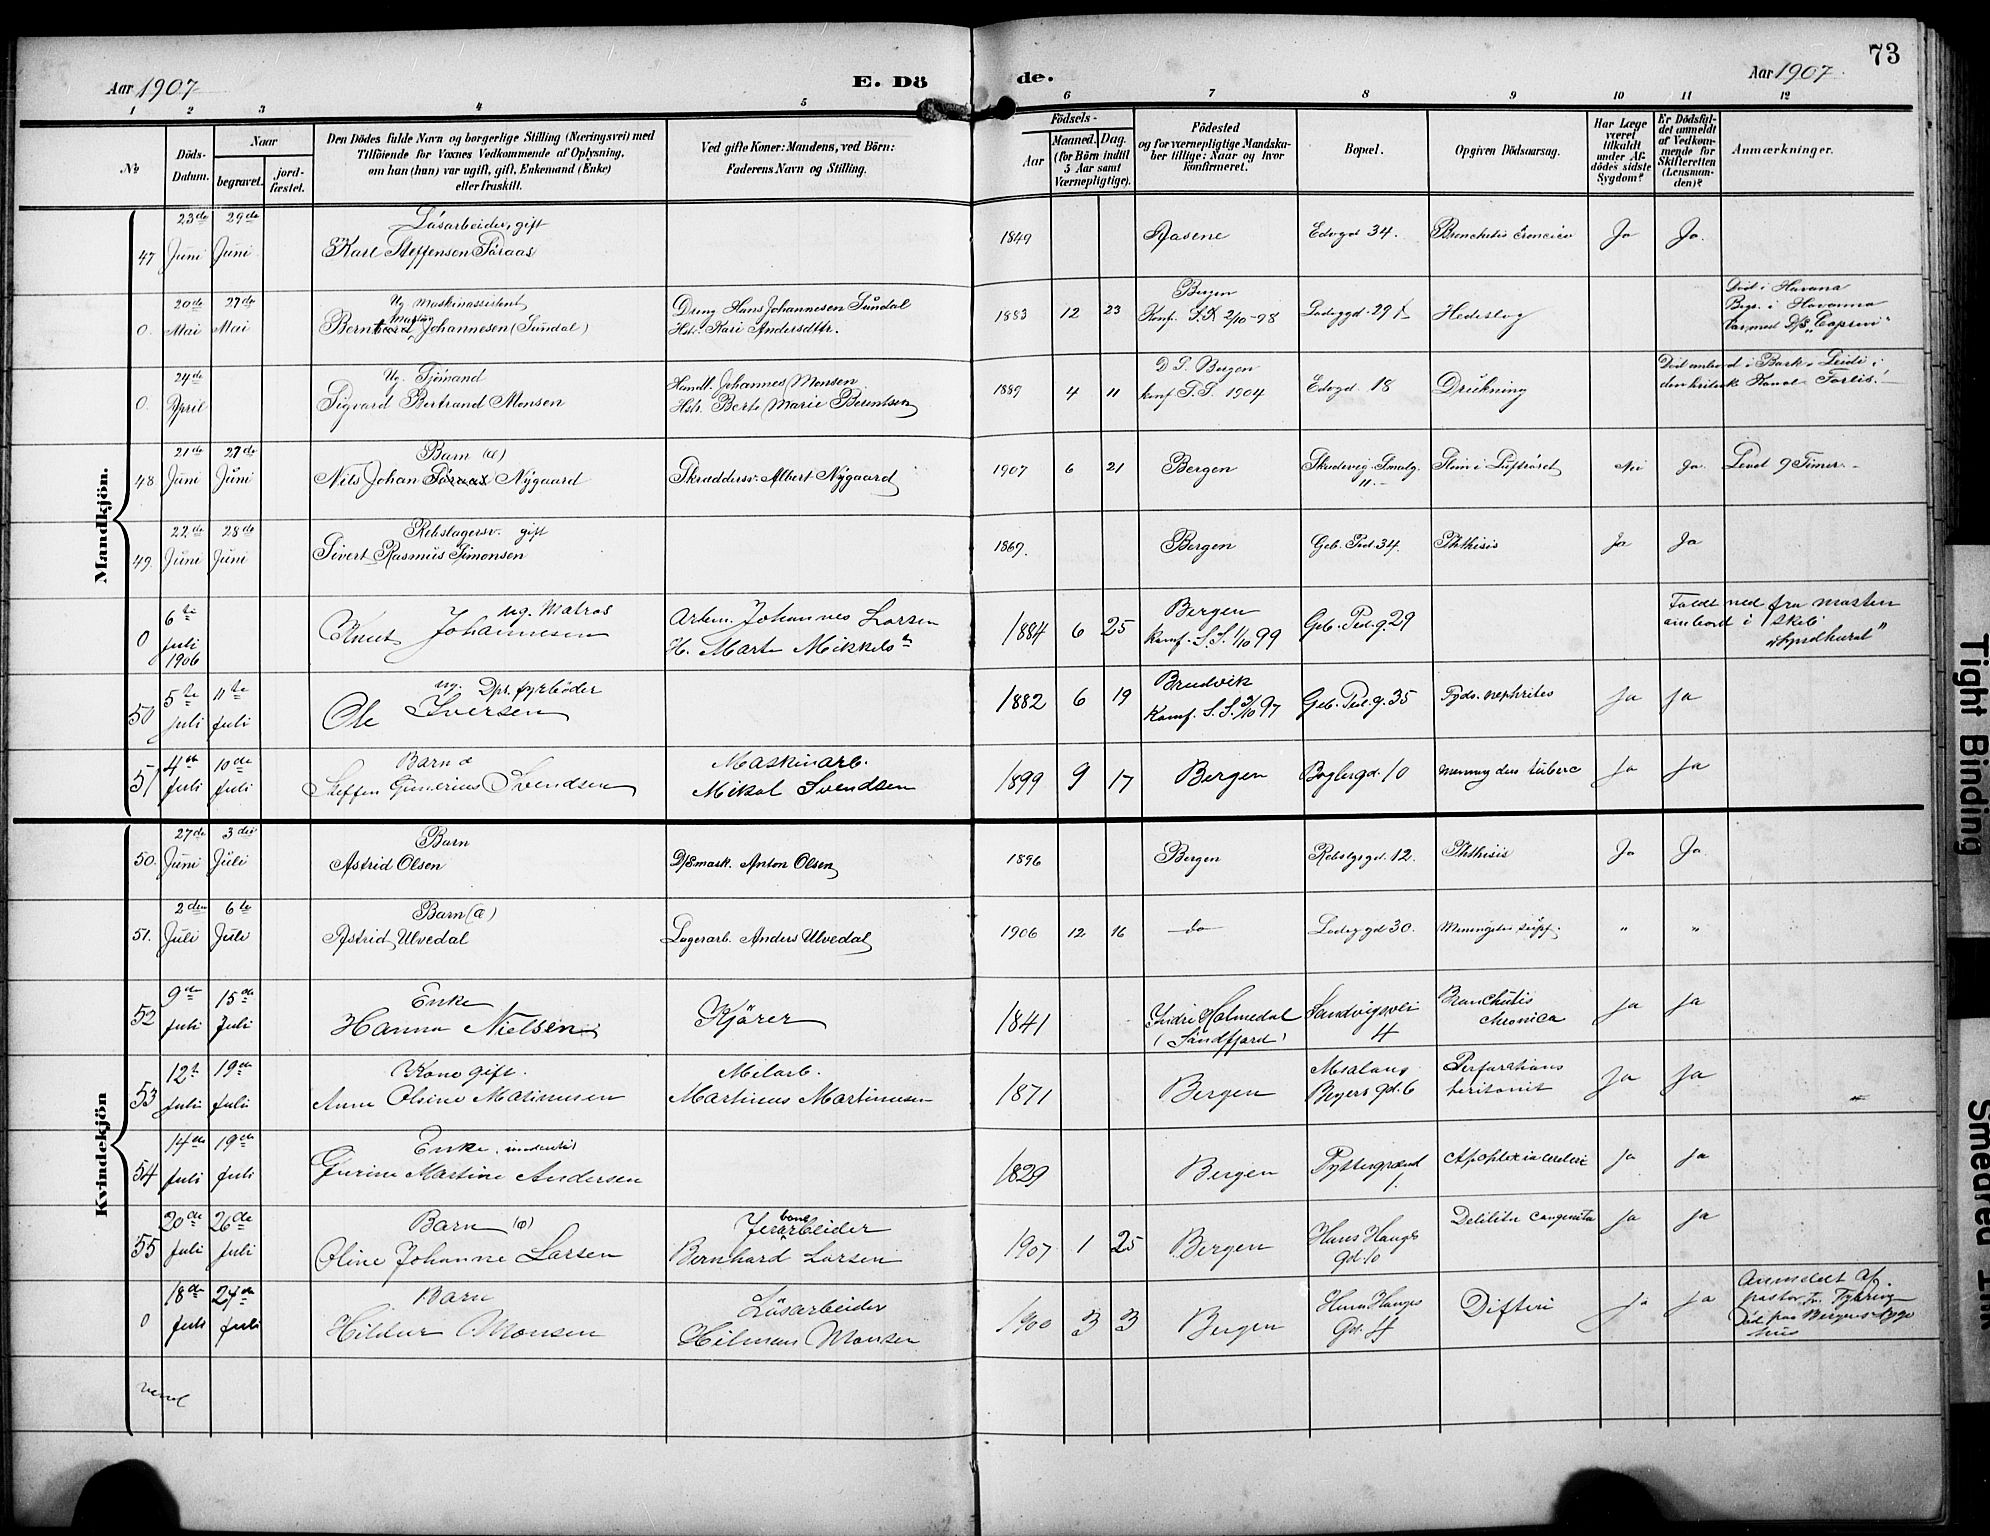 73
Aar 1907
E. Dö de.
Aar 1907.
1 2 3 4 5 6 7 8 9 10 11 12
No
Döds-Datum.
Naar
begravet.
jord-fæstet.
Den Dödes fulde Navn og borgerlige Stilling (Næringsvei) med
Tilföiende for Voxnes Vedkommende af Oplysning,
om han (hun) var ugift, gift, Enkemand (Enke)
eller fraskilt.
Ved gifte Koner: Mandens, ved Börn:
Faderens Navn og Stilling.
Födsels-
Aar
Maaned. Dag.
(for Börn indtil
5 Aar samt
Værnepligtige).
Födested
og for værnepligtige Mandska-
ber tillige: Naar og hvor
konfirmeret.
Bopæl.
Opgiven Dödsaarsag.
Har Læge
været
tilkaldt
under Af-
dödes sidste
Sygdom?
Er Dödsfal-
det anmeldt
af Vedkom-
mende for
Skifteretten
(Lensman-
den)?
Anmærkninger.
Mandkjön.
47 23de Juni 29de Juni Løsarbeider, gift
Karl Steffensen Föraas 1849 Aasene Edvgd 34. Bronchitis cronica Ja Ja.
0. 20de Mai 27de Mai Ug. Maskinassistent
Johannesen (Sundal) Dreng Hans Johannesen Sundal
Hstr. Kari Andersdtr. 1883 12 23 Bergen
Konf. S.K 2/10-98 Ladeggd. 29 Hedeslag Död i Havana
Begr. i Havanna
Var med D/S "Caprivi"
0. 24de April Ug. Sjömand
Sigvard Bertrand Monsen Handl. Johannes Monsen
Hstr. Berte Marie Berentsen 1889 4 11 D.S. Bergen
konf S.S. 1904 Edvgd. 18 Drukning Död ombord i Bark. Leidi i
den britisk Kanal
48 21de Juni 27de Juni Barn (æ)
Nils Johan Föraas Nygaard Skræddersv. Albert Nygaard 1907 6 21 Bergen Skudevig Smalg.
11. Slim i Luftröret Nei Ja. Levet 9 Timer.
49. 22de Juni 28de Juni Rebslagersv. gift
Sivert Rasmus Simonsen 1869. Bergen Geb. Ped. 34. Phthisis Ja Ja
0 6te juli 1906 ug. Matros
Knut Johannesen Arbm. Johannes Larsen
H. Marta Mikkels 1884 6 25 Bergen
Konf. S.S. 1/10 99 Geb. Ped.g. 29 Faldt ned fra masten
ombord i Skib
50 5te juli 11te juli ug. Dps. fyrböder
Ole Iversen 1882 6 19 Bruvik
Konf. S.S. 3/10 97 Geb. Ped.g. 35 nephrites Ja Ja
51 4de juli 10de juli Barn æ
Steffen Gunerius Svendsen Maskinarb.
Mikal Svendsen 1899 9 17 Bergen Boglergd. 10 tuberc Ja Ja
Kvindekjön
50. 27de Juni 3die Juli Barn
Astrid Olsen D/Smask. Anton Olsen 1896 Bergen Rebslgrgd. 12. Phthisis Ja Ja.
51. 2den Juli 6te Juli Barn (æ)
Astrid Ulvedal Lagerarb. Anders Ulvedal 1906 12 16 do Ladeggd 30. Meningitis supp. " "
52 9de juli 15de juli Enke
Hanna Nielsen Kjörer 1841 Indre Holmedal
(Söndfjord) Sandvigsvei
4 Bronchitis
chronica Ja Ja
53 12t juli 19de juli Kone gift.
Anne Olsine Matinusen Melarb.
Martinus Martinusen 1871 Bergen
Beyers gd. 6 Perforations
peritonit Ja Ja
54 14de juli 19de juli Enke
Gurine Martine Andersen 1829 Bergen Pyttergrænd
1. Apoplexia cerebri Ja Ja
55 20de juli 26de juli Barn (æ)
Oline Johanne Larsen Jernbanearbeider
Bernhard Larsen 1907 1 25 Bergen Hans Hauges
gd. 10 Debilitas congenita Ja Ja
0 18de juli 24de juli Barn
Hildur Monsen Lösarbeider
Hilman Monsen 1900 3 3 Bergen Hans Hauges
Gd. 4 Difteri Ja Ja Anmeldt af
pastor fr. Tybring
Död paa Bergens Syge
hus
vend
Tight Binding
Smeared Ink